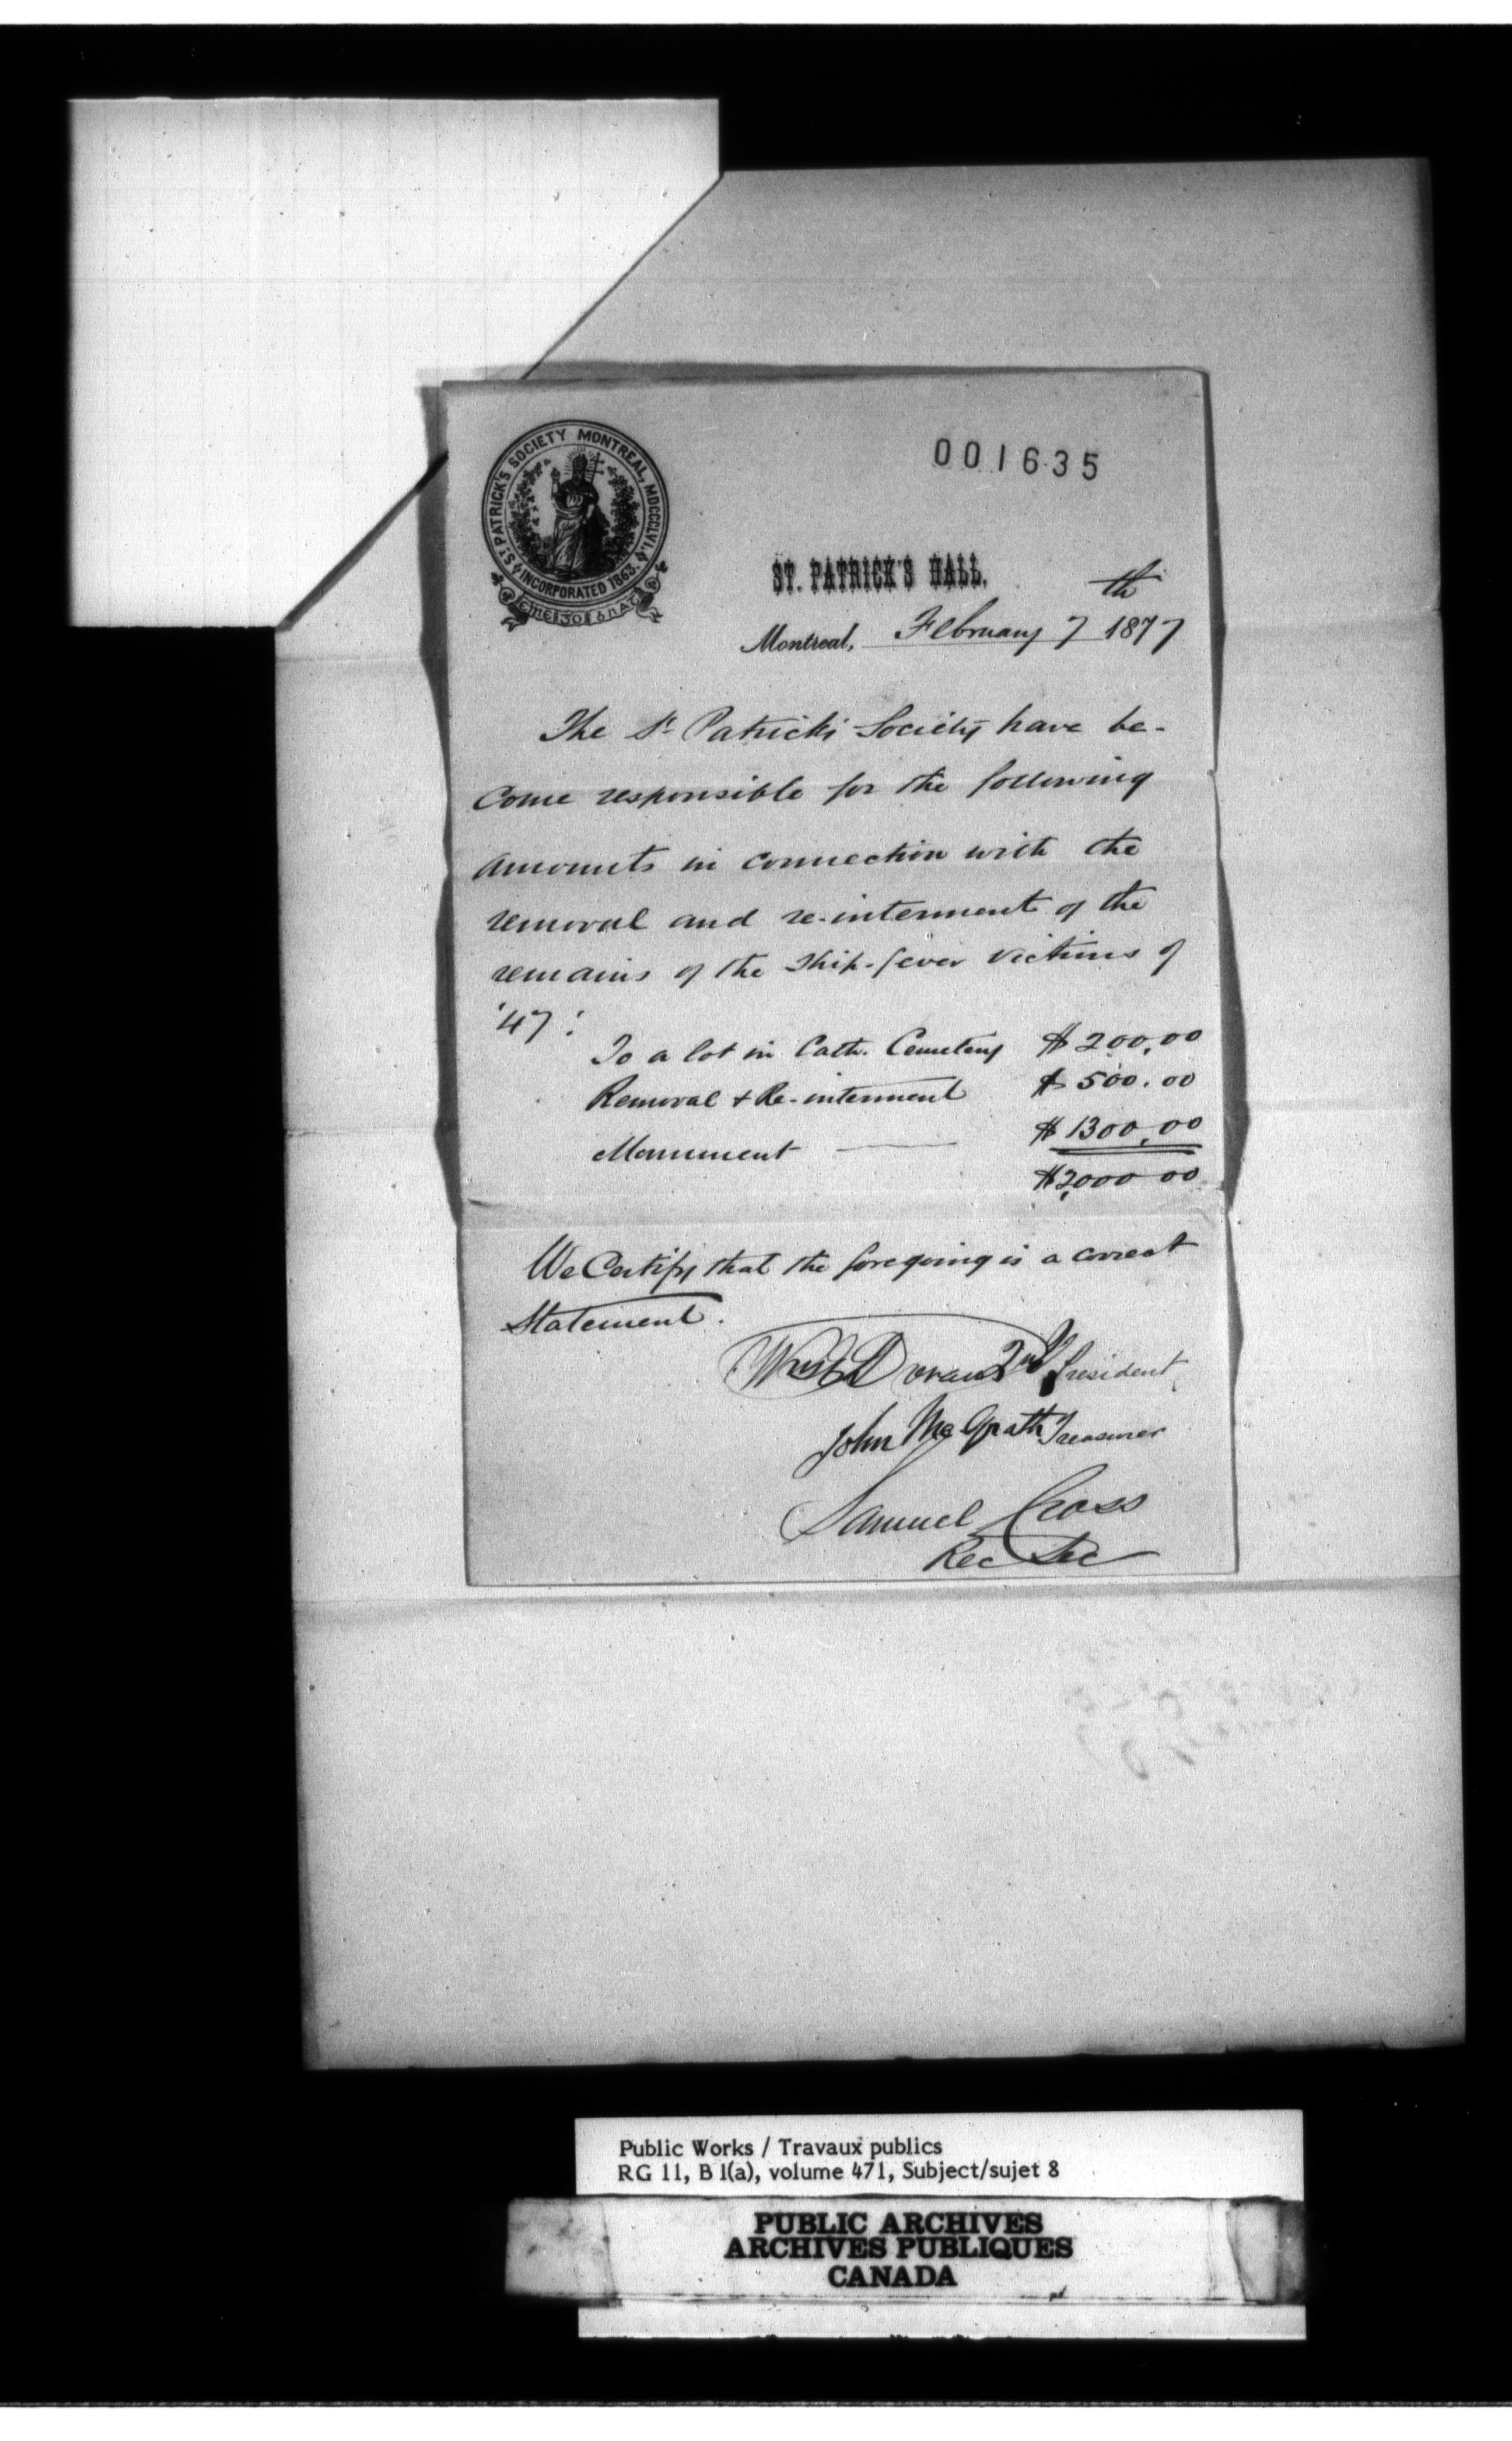 ST PATRICK'S SOCIETY MONTREAL, MDCCCLVI.
INCORPORATED 1863.
001635
ST. PATRICK'S HALL,
Montreal, February 7th 1877
The St Patrick's Society have be-
come responsible for the following
amounts in connection with the
removal and re-interment of the
remains of the ship-fever victims of
'47:
To a lot in Cath. Cemetery $200.00
Removal & Re-interment $500.00
Monument $1300.00
$2,000 00
We Certify that the foregoing is a correct
Statement.
Doran 2nd President
John McGrath Treasurer
Samuel Cross
Rec Sec
Public Works / Travaux publics
RG 11, B 1(a), volume 471, Subject/sujet 8
PUBLIC ARCHIVES
ARCHIVES PUBLIQUES
CANADA